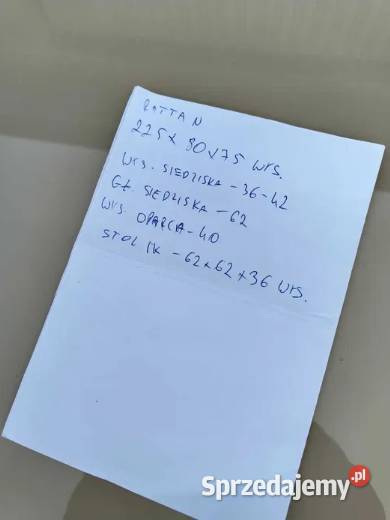 RATTAN
225x 80x75 WYS.
WYS. SIEDZISKA - 36-42
GŁ. SIEDZISKA - 62
WYS. OPARCIA - 40
STOLIK - 62x62x36 WYS.
Sprzedajemy.pl